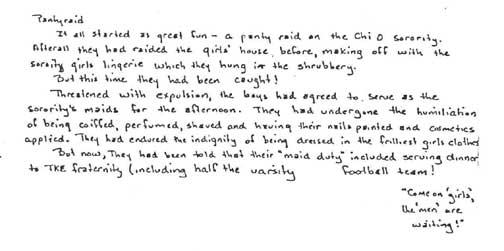 Pantyraid
It all started as great fun - a panty raid on the Chi O sorority.
Afterall they had raided the girls' house before, making off with the
sorority girls lingerie which they hung in the shrubbery.
But this time they had been caught!
Threatened with expulsion, the boys had agreed to serve as the
sorority's maids for the afternoon. They had undergone the humiliation
of being coiffed, perfumed, shaved and having their nails painted and cosmetics
applied. They had endured the indignity of being dressed in the frilliest girls clothes
But now, They had been told that their "maid duty" included serving dinner
to TKE fraternity (including half the varsity football team!
"Come on 'girls',
the 'men' are
waiting!"